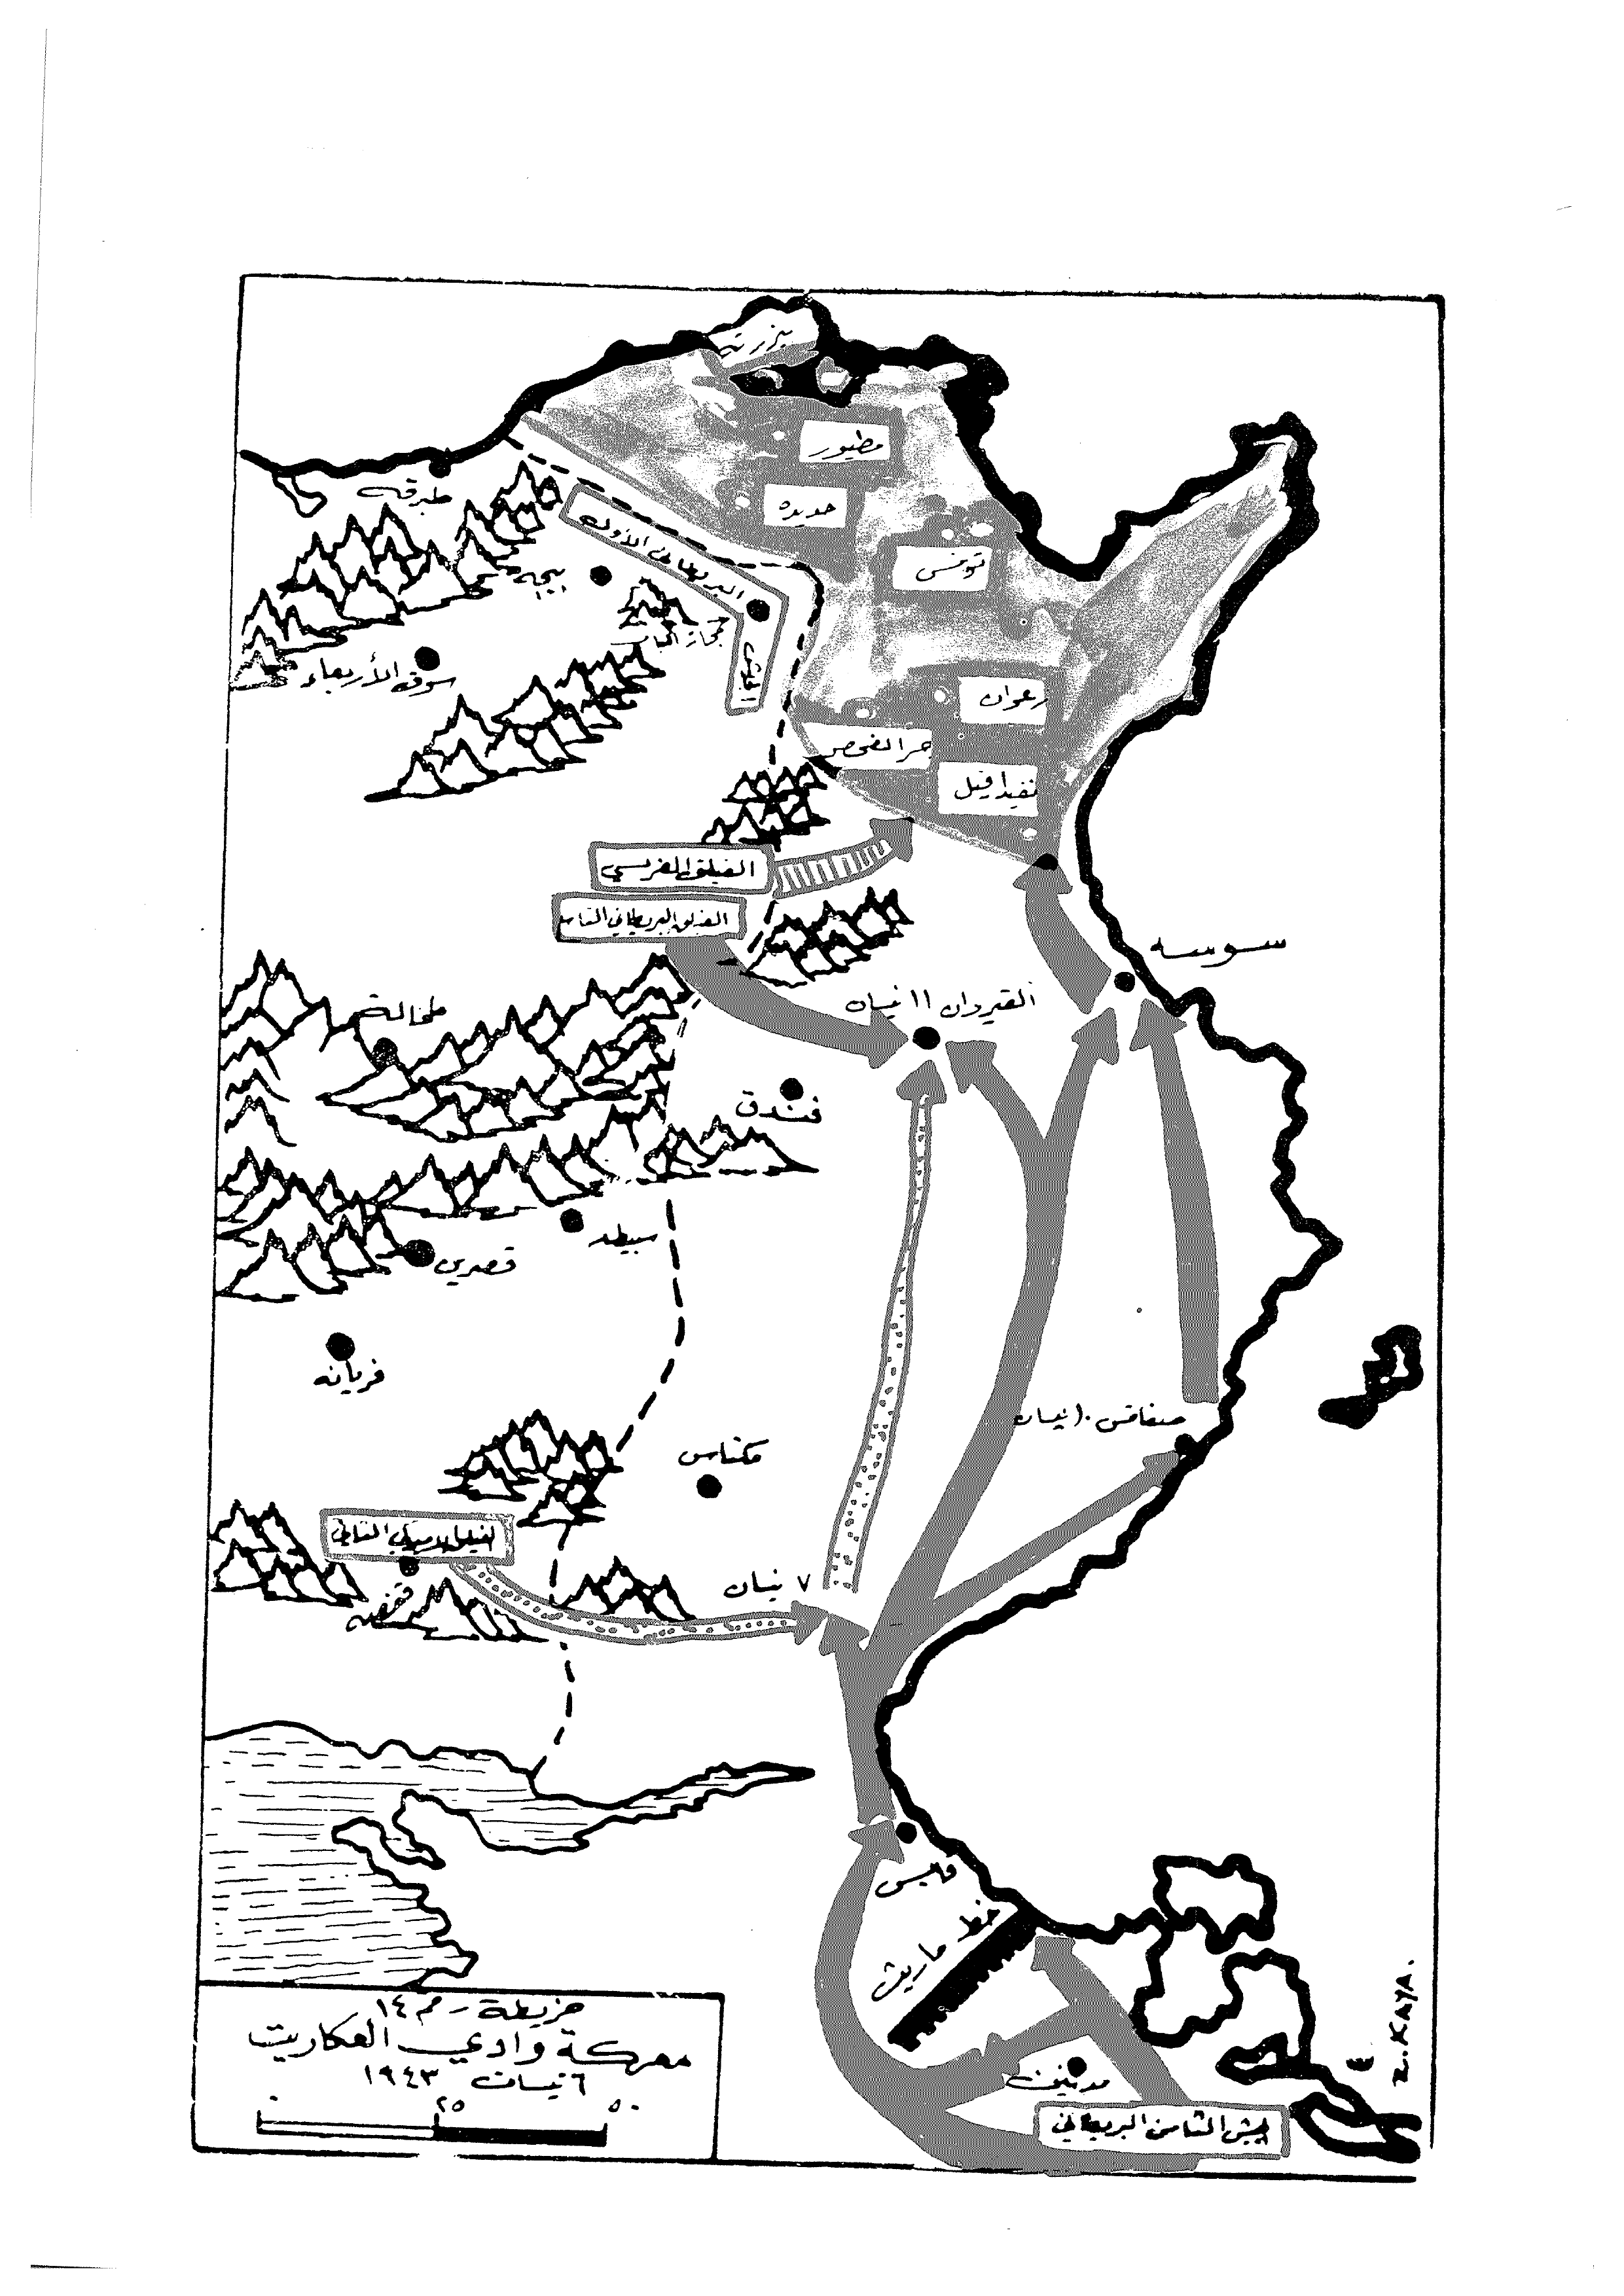 بنزرته
مطيور
جديده
تونس
طبرقه
البريطاني الأول
الجيش
بيجه
مجاز الباب
سوق الأربعاء
زعوان
نفيدافيل
الفيلق الفرنسي
الفيلق البريطاني التاسع
سوسه
القيروان ١١ نيسان
طحالة
فندق
سبيطه
قصرين
فريانه
صفاقس ١٠ نيسان
مكناس
الفيلق الاميركي الثاني
قفصه
٧ نيسان
قابس
خط ماريث
مدنين
الجيش الثامن البريطاني
خريطة رقم ١٤
معركة وادي العكاريت
٦ نيسان ١٩٤٣
٠ ٢٥ ٥٠
Z. KAYA.